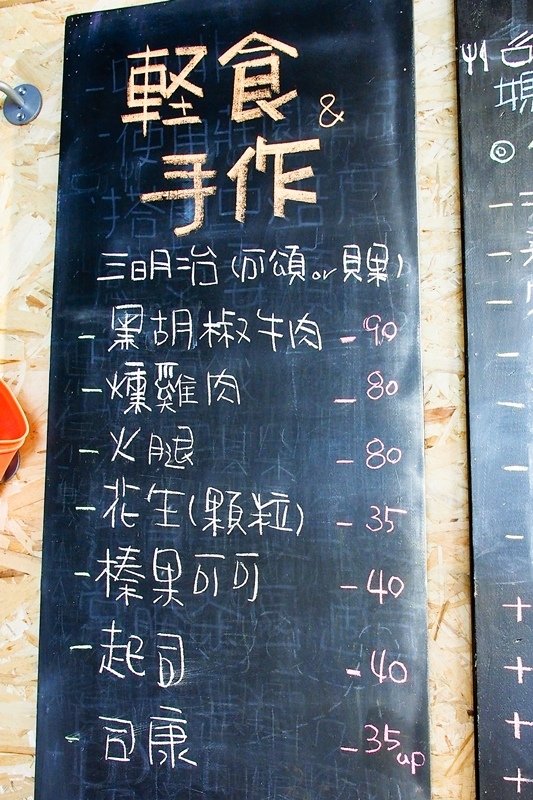 軽食 &
手作
三明治 (可頌 or 貝果)
- 黑胡椒牛肉 - 90
- 燻雞肉 - 80
- 火腿 - 80
- 花生 (顆粒) - 35
- 榛果可可 - 40
- 起司 - 40
- 司康 - 35 up